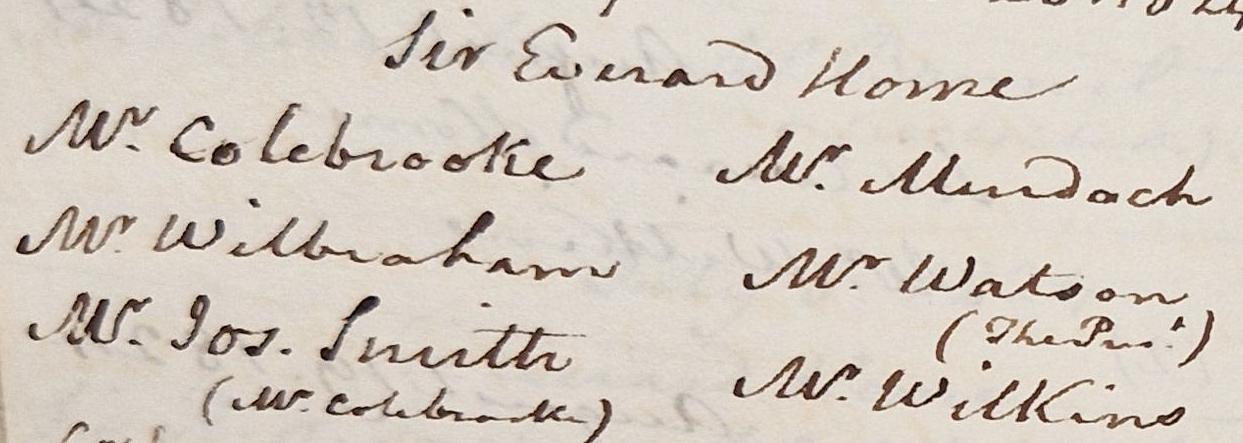 Sir Everard Home
Mr. Colebrooke
Mr. Murdoch
Mr. Wilbraham
Mr. Watson
(The Prest.)
Mr. Jos. Smith
(Mr. Colebrooke)
Mr. Wilkins